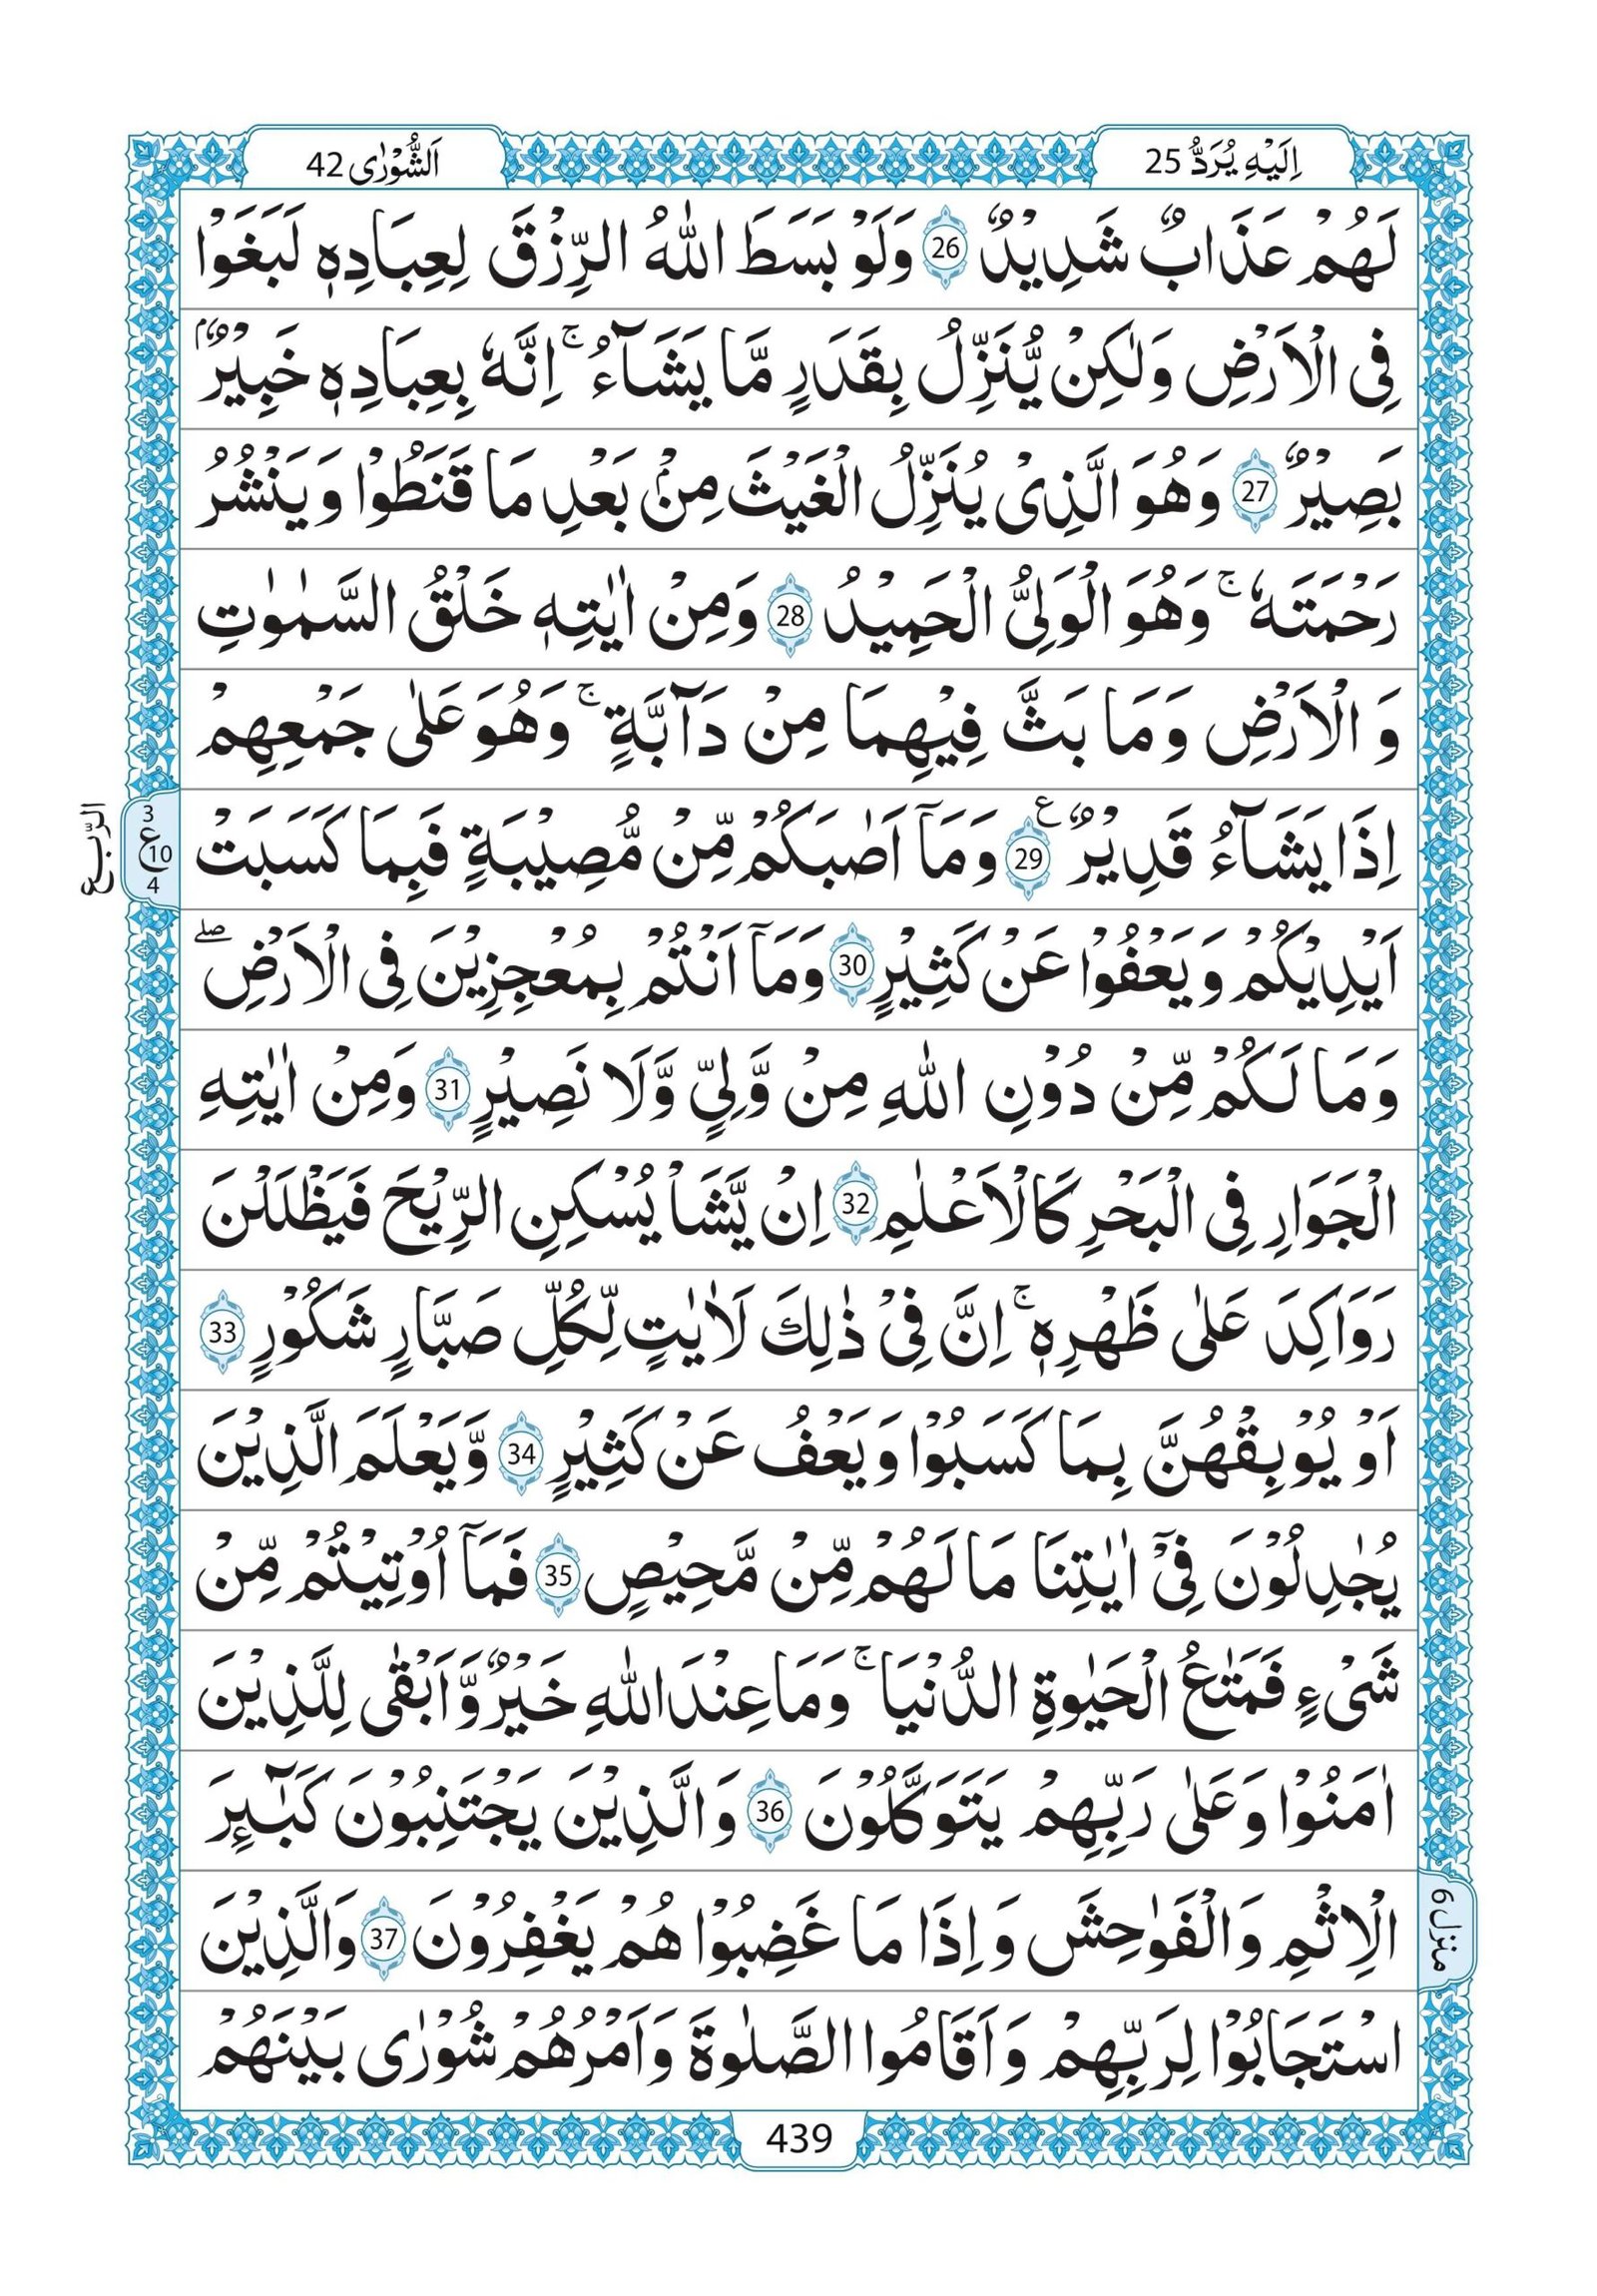 اِلَيْهِ يُرَدُّ 25
اَلشُّوْرٰى 42
لَهُمْ عَذَابٌ شَدِيْدٌ 26 وَلَوْ بَسَطَ اللّٰهُ الرِّزْقَ لِعِبَادِهٖ لَبَغَوْا
فِى الْاَرْضِ وَلٰكِنْ يُّنَزِّلُ بِقَدَرٍ مَّا يَشَآءُ ۚ اِنَّهٗ بِعِبَادِهٖ خَبِيْرٌۢ
بَصِيْرٌ 27 وَهُوَ الَّذِىْ يُنَزِّلُ الْغَيْثَ مِنْۢ بَعْدِ مَا قَنَطُوْا وَيَنْشُرُ
رَحْمَتَهٗ ۚ وَهُوَ الْوَلِىُّ الْحَمِيْدُ 28 وَمِنْ اٰيٰتِهٖ خَلْقُ السَّمٰوٰتِ
وَ الْاَرْضِ وَمَا بَثَّ فِيْهِمَا مِنْ دَآبَّةٍ ۚ وَهُوَ عَلٰى جَمْعِهِمْ
اِذَا يَشَآءُ قَدِيْرٌ ع 29 وَمَاۤ اَصٰبَكُمْ مِّنْ مُّصِيْبَةٍ فَبِمَا كَسَبَتْ
3
ع 10
4
الرّبع
اَيْدِيْكُمْ وَيَعْفُوْا عَنْ كَثِيْرٍ 30 وَمَاۤ اَنْتُمْ بِمُعْجِزِيْنَ فِى الْاَرْضِ ۖ
وَمَا لَكُمْ مِّنْ دُوْنِ اللّٰهِ مِنْ وَّلِىٍّ وَّلَا نَصِيْرٍ 31 وَمِنْ اٰيٰتِهِ
الْجَوَارِ فِى الْبَحْرِ كَالْاَعْلٰمِ 32 اِنْ يَّشَاْ يُسْكِنِ الرِّيْحَ فَيَظْلَلْنَ
رَوَاكِدَ عَلٰى ظَهْرِهٖ ۚ اِنَّ فِىْ ذٰلِكَ لَاٰيٰتٍ لِّكُلِّ صَبَّارٍ شَكُوْرٍ 33
اَوْ يُوْبِقْهُنَّ بِمَا كَسَبُوْا وَيَعْفُ عَنْ كَثِيْرٍ 34 وَّيَعْلَمَ الَّذِيْنَ
يُجٰدِلُوْنَ فِىْۤ اٰيٰتِنَا مَا لَهُمْ مِّنْ مَّحِيْصٍ 35 فَمَاۤ اُوْتِيْتُمْ مِّنْ
شَىْءٍ فَمَتٰعُ الْحَيٰوةِ الدُّنْيَا ۚ وَمَا عِنْدَ اللّٰهِ خَيْرٌ وَّاَبْقٰى لِلَّذِيْنَ
اٰمَنُوْا وَعَلٰى رَبِّهِمْ يَتَوَكَّلُوْنَ 36 وَالَّذِيْنَ يَجْتَنِبُوْنَ كَبٰٓئِرَ
الْاِثْمِ وَالْفَوٰحِشَ وَاِذَا مَا غَضِبُوْا هُمْ يَغْفِرُوْنَ 37 وَالَّذِيْنَ
منزل 6
اسْتَجَابُوْا لِرَبِّهِمْ وَاَقَامُوا الصَّلٰوةَ وَاَمْرُهُمْ شُوْرٰى بَيْنَهُمْ
439